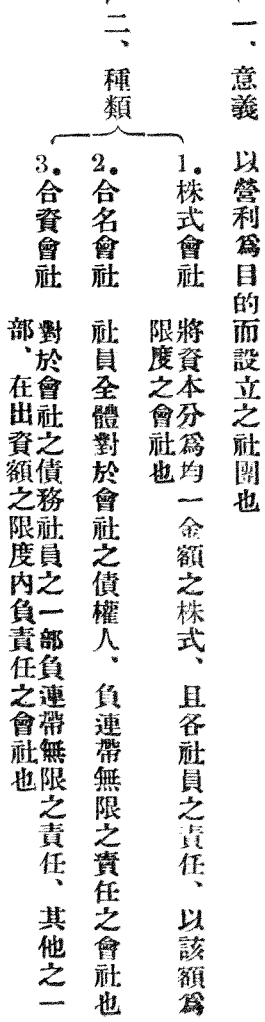 一、意義　以營利爲目的而設立之社團也
二、種類
1.株式會社　將資本分爲均一金額之株式、且各社員之責任、以該額爲
限度之會社也
2.合名會社　社員全體對於會社之債權人、負連帶無限之責任之會社也
3.合資會社　對於會社之債務社員之一部負連帶無限之責任、其他之一
部、在出資額之限度內負責任之會社也